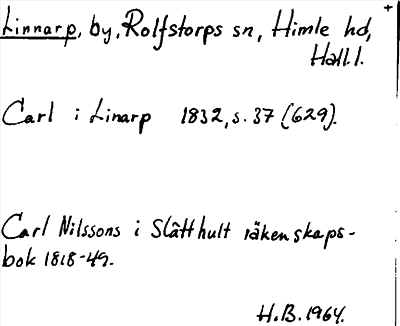 Linnarp, by, Rolfstorps sn, Himle hd, +
Hall.l.
Carl i Linarp 1832, s. 37 (629).
Carl Nilssons i Slätthult räkenskaps-
bok 1818-49.
H.B. 1964.